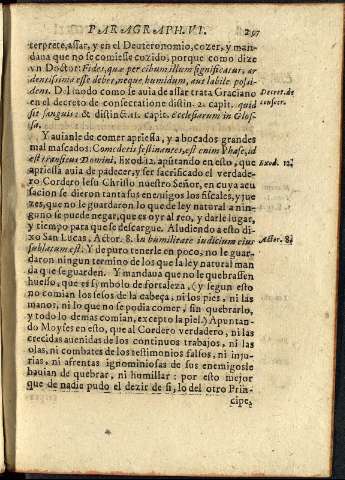 PARAGRAPH. VI. 297
terprete, assar, y en el Deuteronomio, cozer, y man-
dana que no se comiesse cozido; porque como dize
vn Doctor: Fides, quæ per cibum illum significatur, ar
dentissima esse debet, neque humidum, aut labile possi-
dens. Del modo como se auia de assar trata Graciano
en el decreto de consecratione distin. 2. capit. quid
sit sanguis: & distinct. 21. capit. ecclesiarum in Glos-
sa.
Decret. de
consecr.
Y auianle de comer apriessa, y a bocados grandes
mal mascados: Comedetis festinantes, est enim Phase, id
est transitus Domini, Exod. 12. apuntando en esto, que
apriessa auia de padecer, y ser sacrificado el verdade-
ro Cordero Iesu Christo nuestro Señor, en cuya acu
sacion se dieron tanta sus enemigos los fiscales, y jue
zes, que no le guardaron lo que de ley natural a nin-
guno se puede negar, que es oyr al reo, y darle lugar,
y tiempo para que se descargue. Aludiendo a esto di-
xo San Lucas, Actor. 8. In humilitate iudicium eius
sublatum est. Y de puro tenerle en poco, no le guar-
daron ningun termino de los que la ley natural man
da que se guarden. Y mandaua que no le quebrassen
huesso, que es symbolo de fortaleza, (y segun esto
no comian los sesos de la cabeça, ni los pies, ni las
manos, ni lo que no se podia comer, sin quebrarlo,
y todo lo demas comian, excepto la piel.) Apuntan-
do Moyses en esto, que al Cordero verdadero, ni las
crecidas auenidas de los continuos trabajos, ni las
olas, ni combates de los testimonios falsos, ni inju-
rias, ni afrentas ignominiosas de sus enemigos le
hauian de quebrar, ni humillar: por esto mejor
que de nadie pudo el dezir de si, lo del otro Prin-
cipe,
Exod. 12.
Actor. 8.